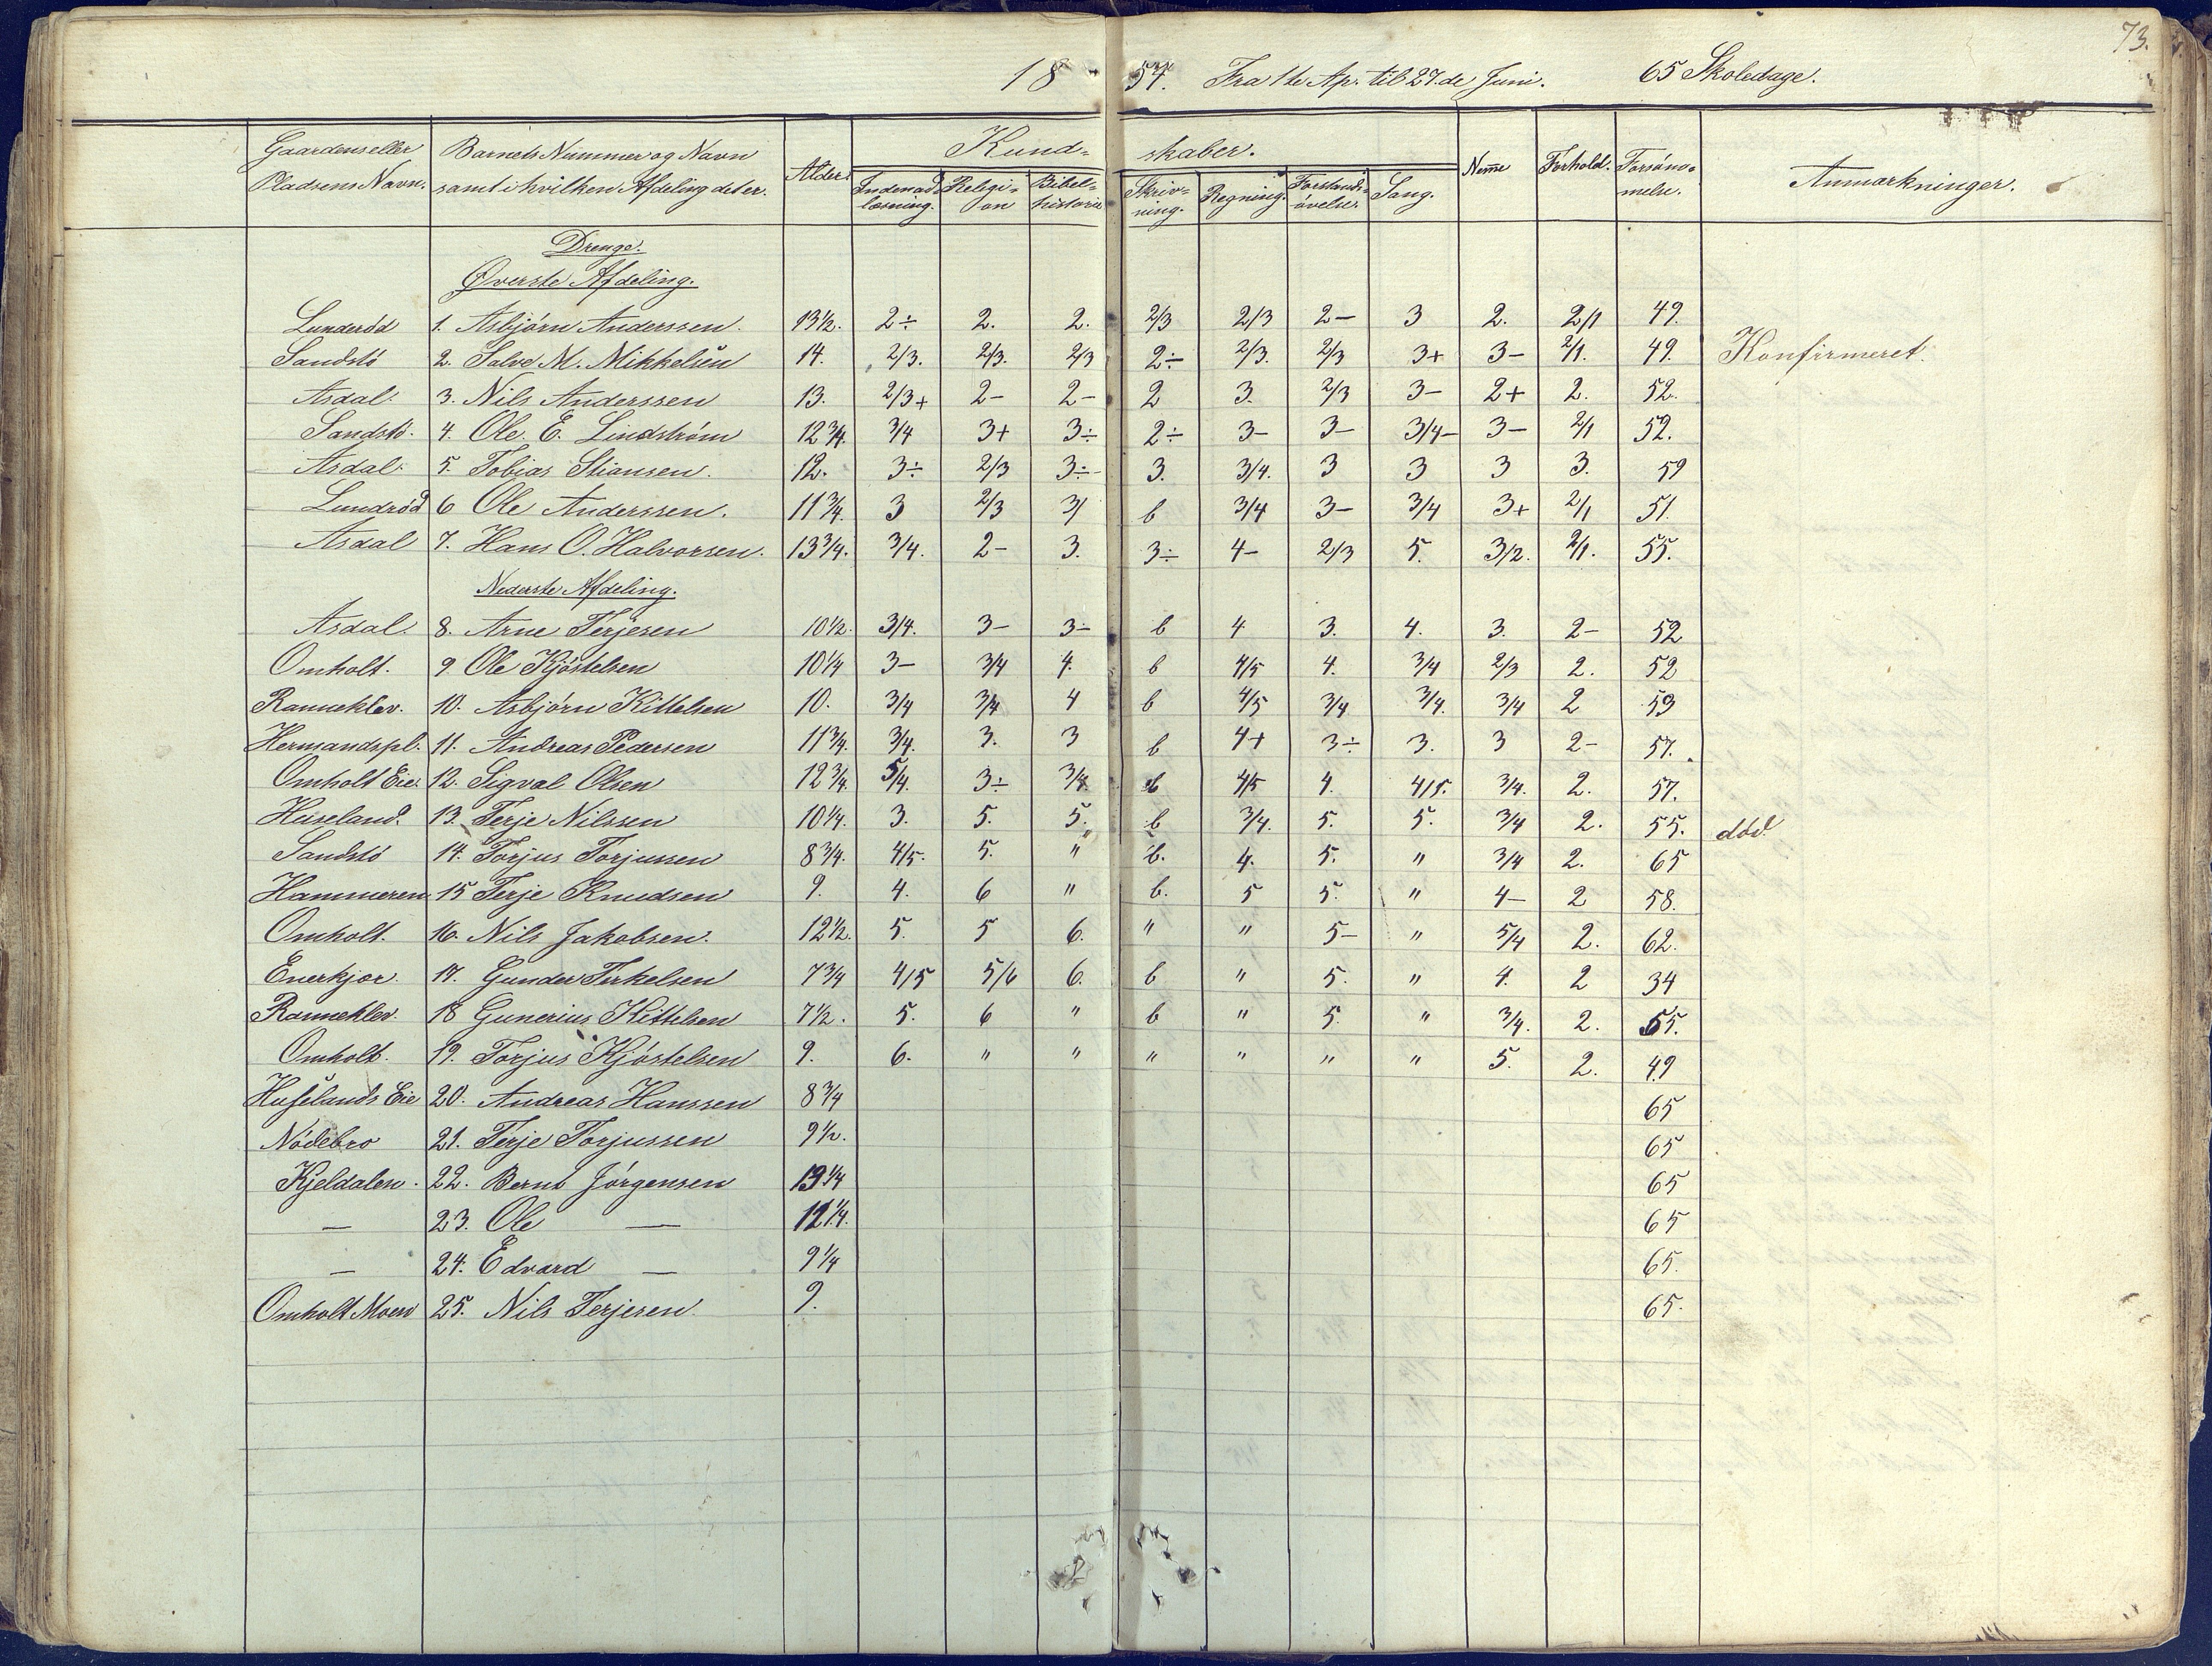 73.
1854. Fra 1te Ap. til 27.de Juni. 65 Skoledage.
Gaardens eller Pladsens Navn. | Barnets Nummer og Navn samt i hvilken Afdeling det er. | Alder. | Kundskaber. | Nemme | Forhold. | Forsømmelse. | Anmærkninger.
Indenadlæsning. | Religion | Bibelhistorie | Skrivning. | Regning. | Forstandsøvelse. | Sang.
Drenge.
Øverste Afdeling.
Lunderöd 1. Asbjörn Anderssen. 13½. 2÷ 2. 2. 2/3 2/3 2- 3 2. 2/1 49.
Sandstö 2. Salve M. Mikkelsen 14. 2/3. 2/3. 2/3 2÷ 2/3. 2/3 3+ 3- 2/1. 49. Konfirmeret.
Asdal. 3. Nils Anderssen 13. 2/3+ 2- 2- 2 3. 2/3 3- 2+ 2. 52.
Sandstö. 4. Ole. E. Lindström 12¾. 3/4 3+ 3÷ 2÷ 3- 3- 3/4- 3- 2/1 52.
Asdal. 5. Tobias Stiansen. 12. 3÷ 2/3 3÷ 3. 3/4. 3 3 3 3. 59
Lundröd 6 Ole Anderssen. 11¾. 3 2/3 3/ b 3/4 3- 3/4 3+ 2/1 51.
Asdal 7. Hans O. Halvorsen. 13¾. 3/4. 2- 3. 3÷ 4- 2/3 5. 3/2. 2/1. 55.
Nederste Afdeling.
Asdal. 8. Arne Terjesen 10½. 3/4. 3- 3- b 4 3. 4. 3. 2- 52
Omholt. 9. Ole Kjöstelsen 10¼ 3- 3/4 4. b 4/5 4. 3/4 2/3 2. 52
Rannekler. 10. Asbjörn Kittelsen 10. 3/4 3/4 4 b 4/5 3/4 3/4. 3/4 2 59
Hermandspl. 11. Andreas Pedersen 11¾. 3/4. 3. 3 b 4+ 3÷ 3. 3 2- 57.
Omholt Eie. 12. Sigval Olsen 12¾. 5/4. 3÷ 3/4 b 4/5 4. 4/5. 3/4. 2. 57.
Huseland. 13. Terje Nilssen 10¼. 3. 5. 5. b 3/4. 5. 5. 3/4 2. 55. död
Sandstö 14. Torjus Torjussen 8¾. 4/5. 5. " b. 4. 5. " 3/4 2. 65
Hammeren 15 Terje Knudsen 9. 4. 6 " b. 5 5. " 4- 2 58.
Omholt. 16. Nils Jakobsen. 12½. 5. 5 6. " " 5- " 5/4 2. 62.
Enerkjær. 17. Gunder Terkelsen 7¾ 4/5 5/6 6. b " 5. " 4. 2 34
Rannekler. 18 Gunerius Kittelsen 7½. 5. 6 " b " 5. " 3/4. 2. 55.
Omholt. 19. Torjus Kjöstelsen 9. 6. " " " " " " 5. 2. 49
Huselands Eie 20. Andreas Hanssen 8¾ 65
Nödebro 21. Terje Torjussen 9½. 65
Kjeldalen. 22. Bernt Jörgensen 13¼ 65
— 23. Ole — 12¼. 65
— 24. Edvard — 9¼ 65.
Omholt Moen 25. Nils Terjesen. 9. 65.